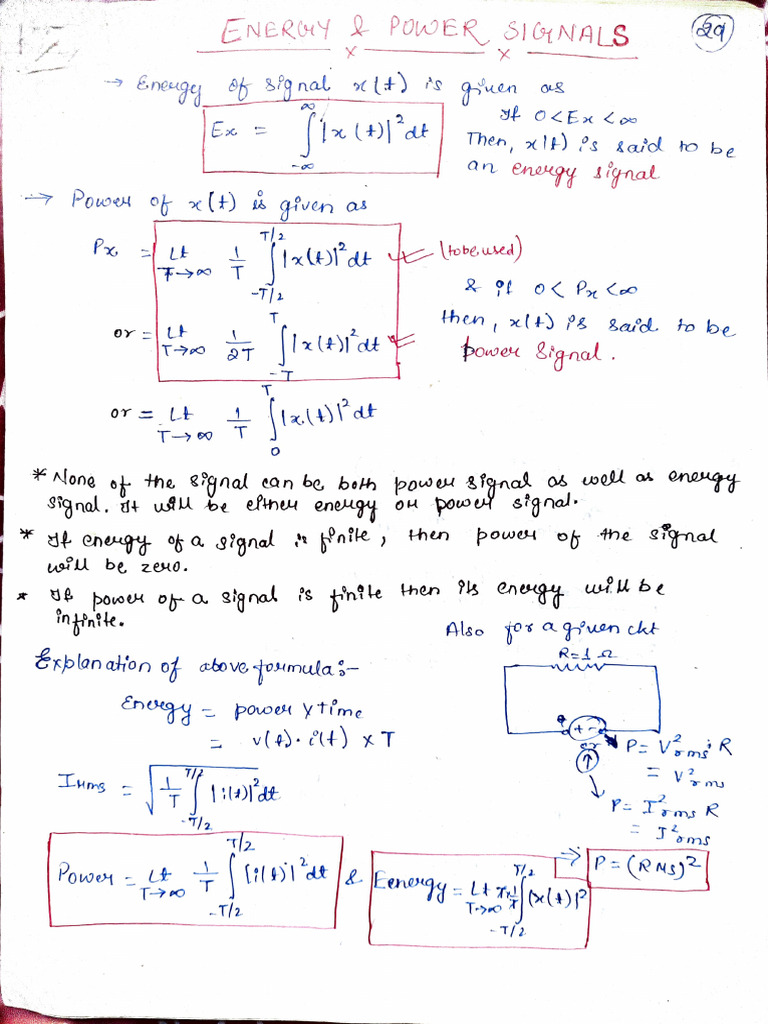 ENERGY & POWER SIGNALS
29
→ Energy of signal x(t) is given as
Ex = ∫_{-∞}^{∞} |x(t)|² dt
If 0<Ex<∞
Then, x(t) is said to be
an energy signal
→ Power of x(t) is given as
Px = Lt_{T→∞} 1/T ∫_{-T/2}^{T/2} |x(t)|² dt
(to be used)
or = Lt_{T→∞} 1/2T ∫_{-T}^{T} |x(t)|² dt
& if 0< Px <∞
then, x(t) is said to be
power signal.
or = Lt_{T→∞} 1/T ∫_{0}^{T} |x(t)|² dt
* None of the signal can be both power signal as well as energy
signal. It will be either energy or power signal.
* If energy of a signal is finite, then power of the signal
will be zero.
* If power of a signal is finite then its energy will be
infinite.
Also for a given ckt
R=1 Ω
+ -
or
↑
P = V²rms . R
= V²rms
P = I²rms R
= I²rms
Explanation of above formula:-
Energy = power × time
= v(t) . i(t) × T
Irms = √(1/T ∫_{-T/2}^{T/2} |i(t)|² dt)
Power = Lt_{T→∞} 1/T ∫_{-T/2}^{T/2} |i(t)|² dt & Eenergy = Lt_{T→∞} T×1/T ∫_{-T/2}^{T/2} |x(t)|²
⇒ P = (RMS)²